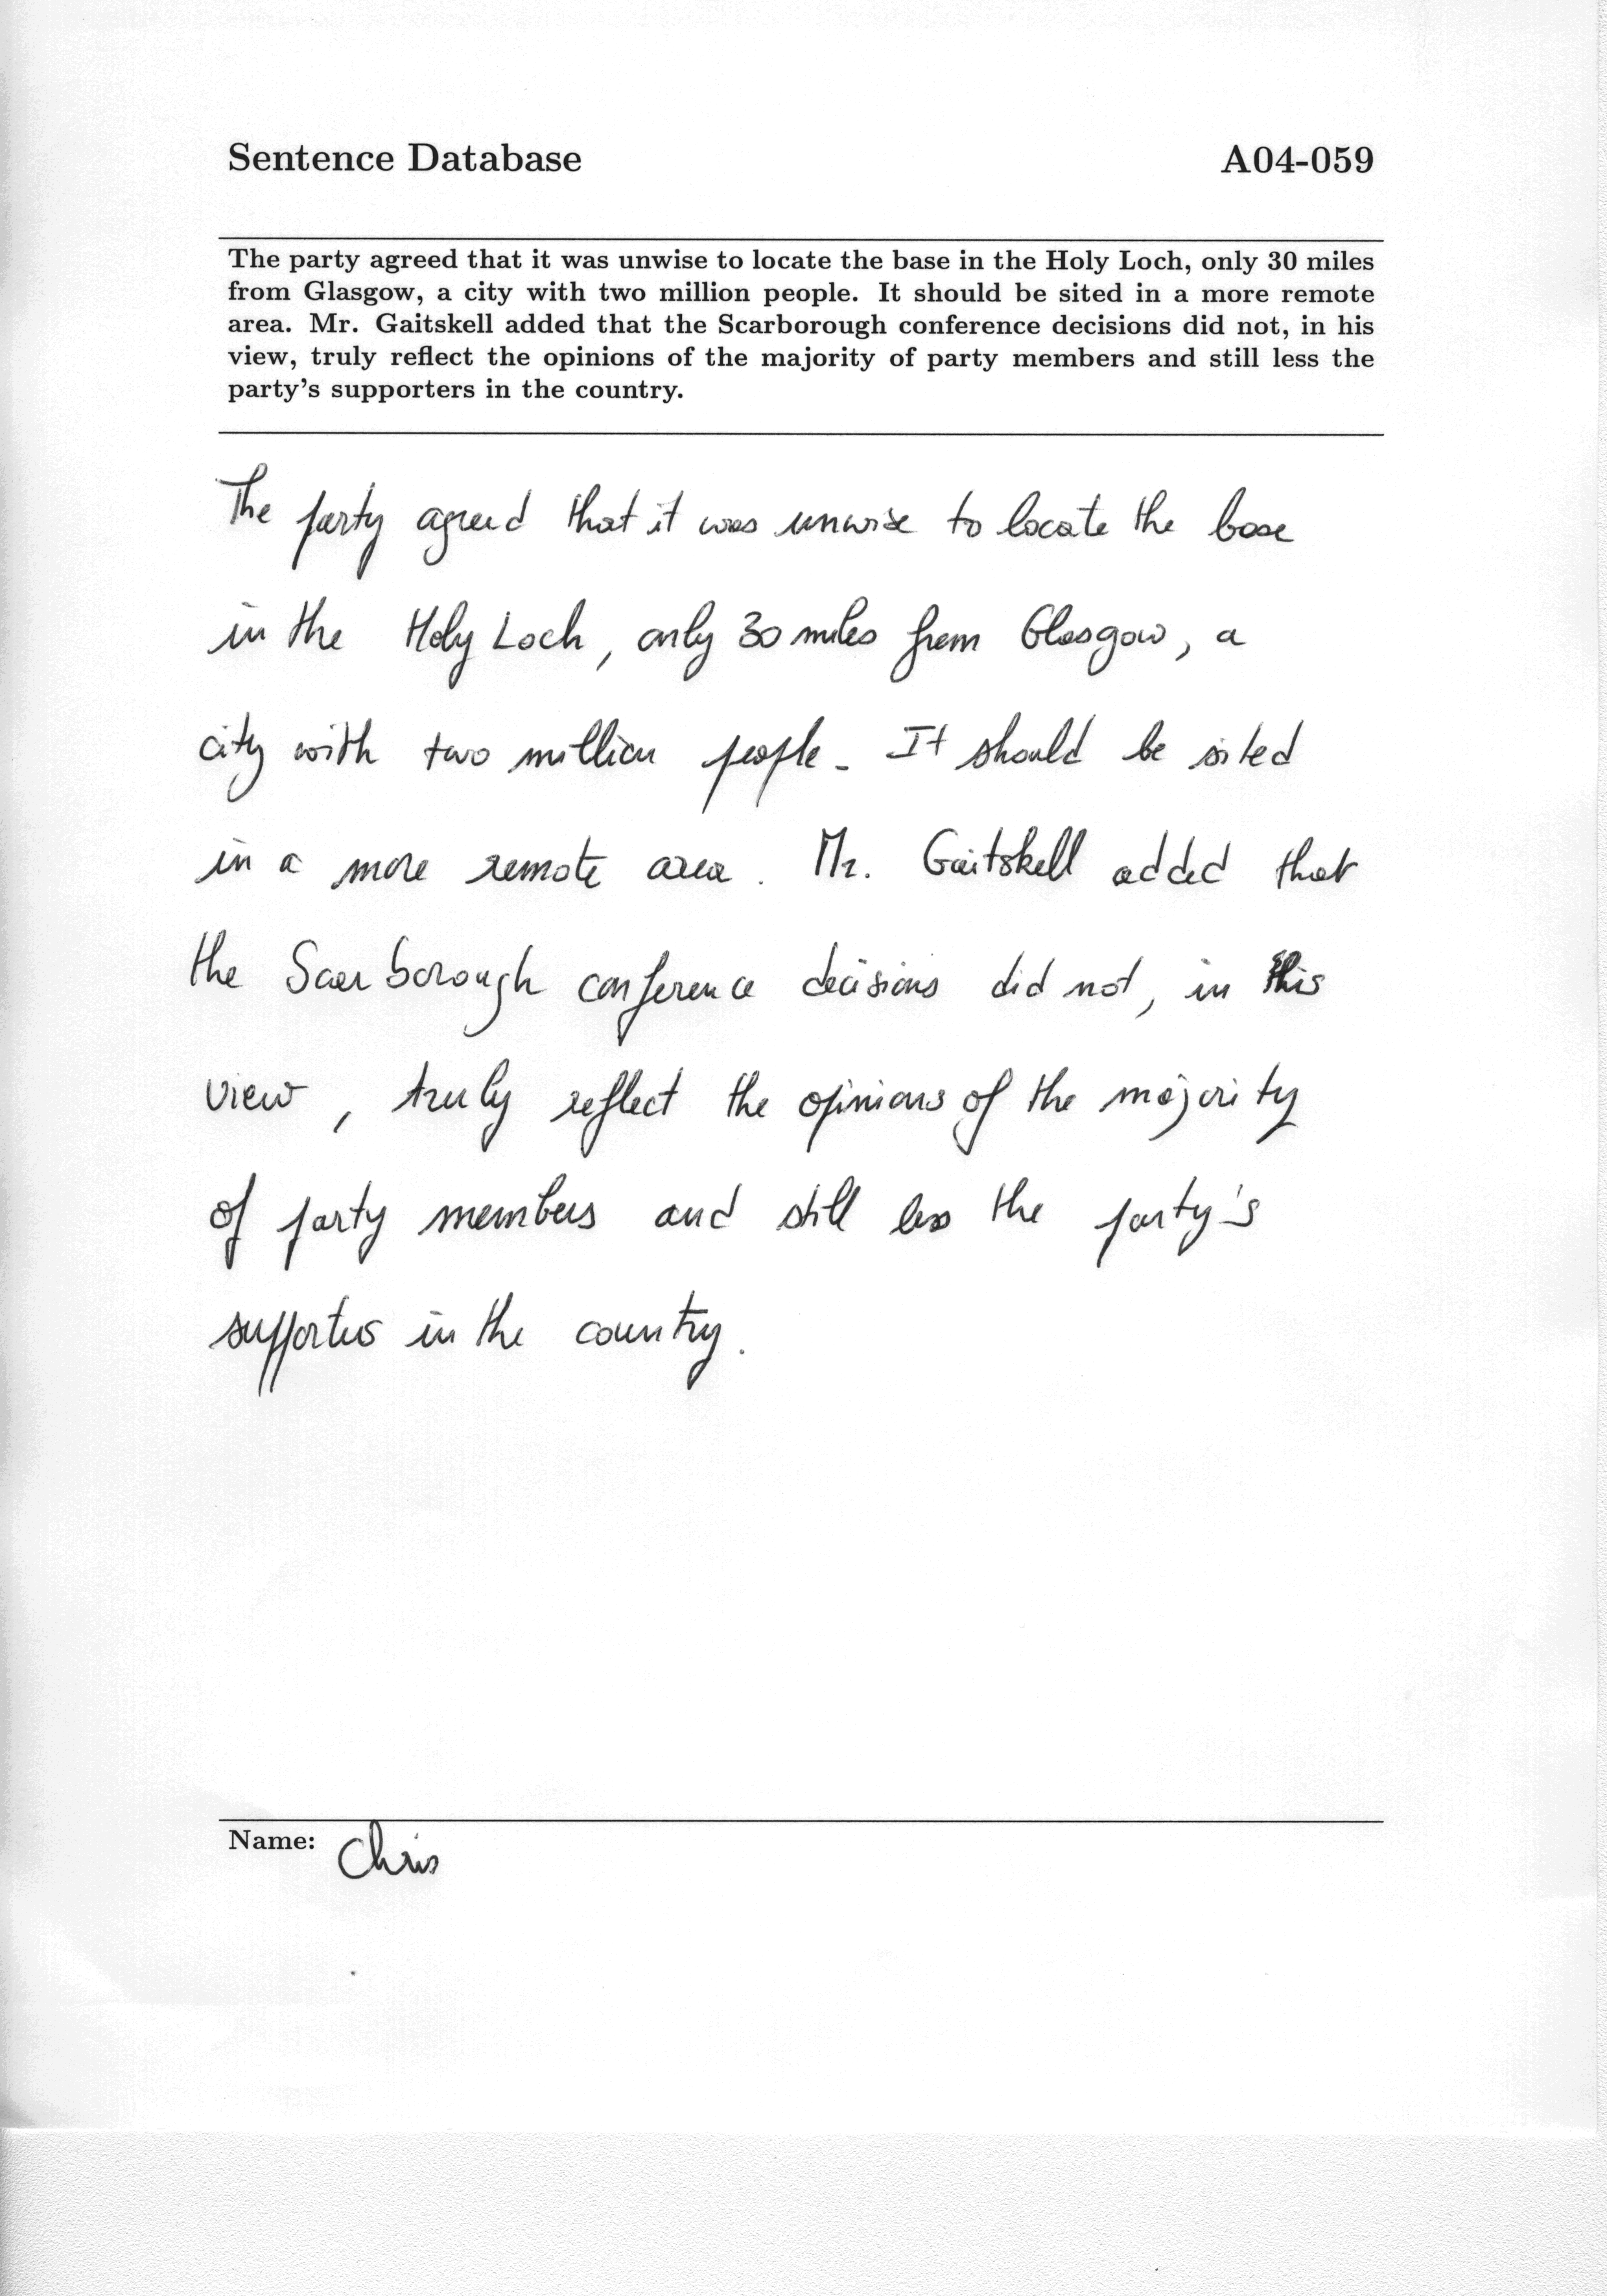 Sentence Database A04-059
The party agreed that it was unwise to locate the base in the Holy Loch, only 30 miles
from Glasgow, a city with two million people. It should be sited in a more remote
area. Mr. Gaitskell added that the Scarborough conference decisions did not, in his
view, truly reflect the opinions of the majority of party members and still less the
party's supporters in the country.
The party agreed that it was unwise to locate the base
in the Holy Loch, only 30 miles from Glasgow, a
city with two million people. It should be sited
in a more remote area. Mr. Gaitskell added that
the Scarborough conference decisions did not, in this
view, truly reflect the opinions of the majority
of party members and still less the party's
supporters in the country.
Name: Chris